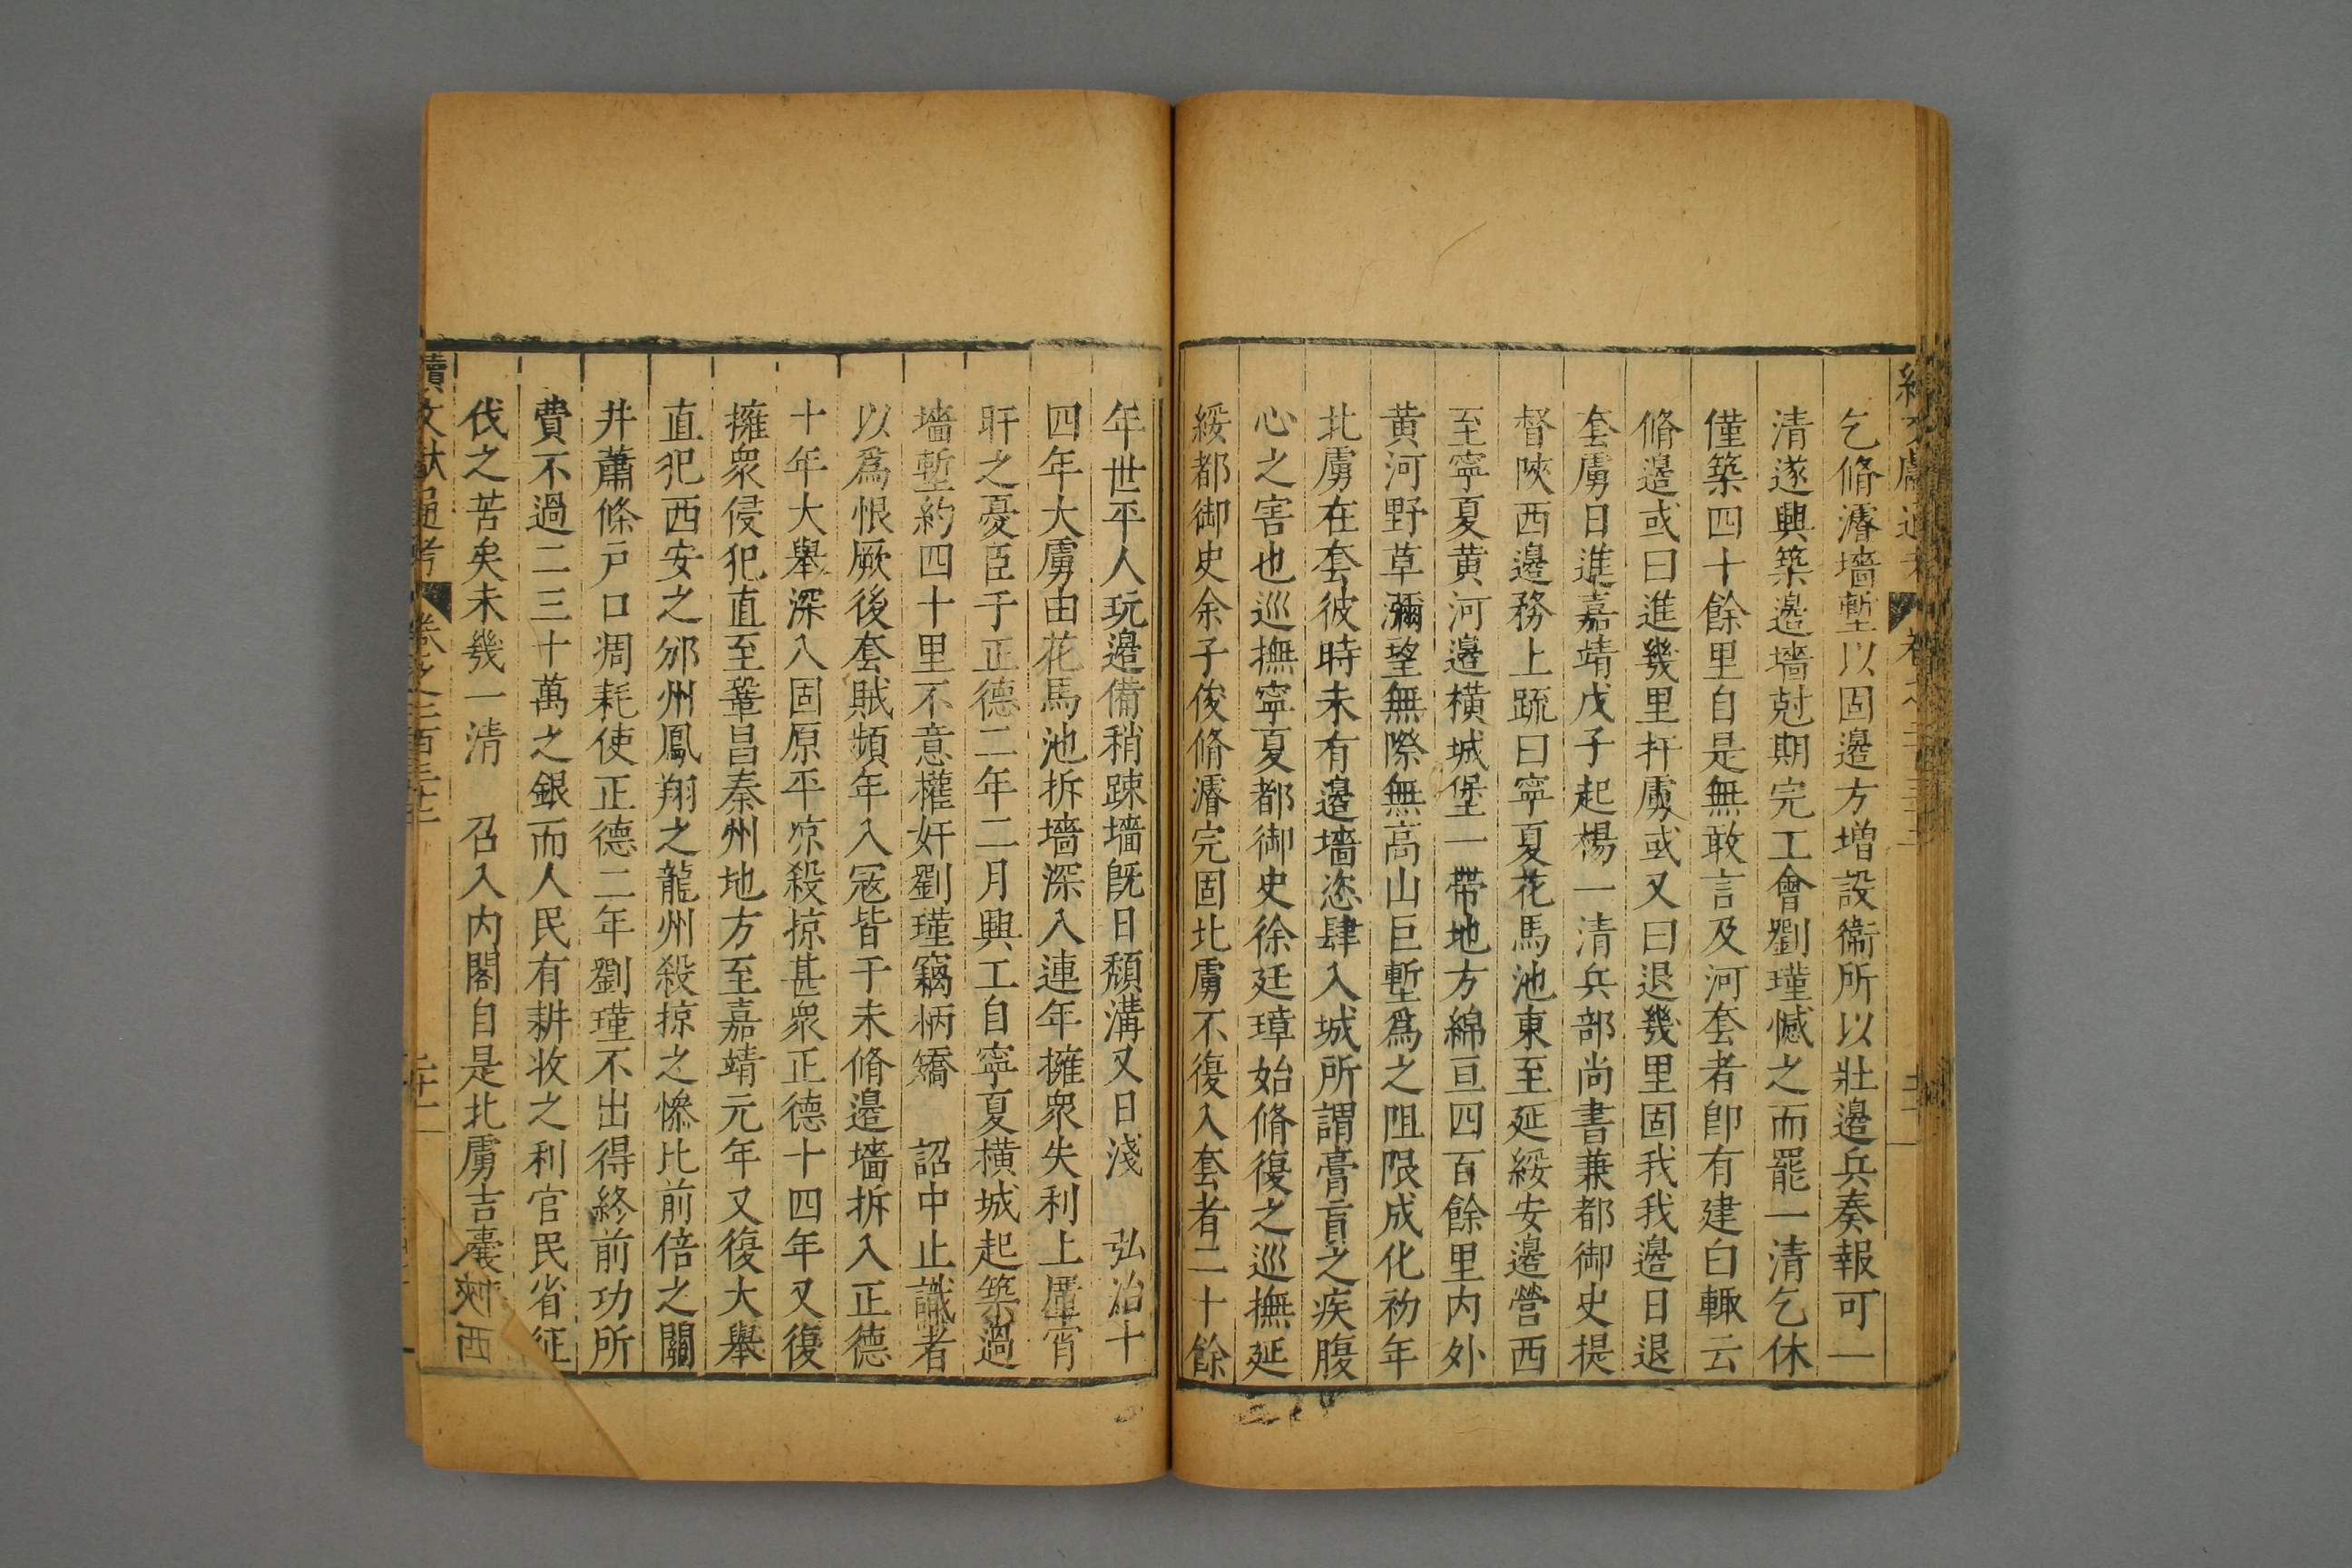 乞脩濬墻塹以固邉方增設衞所以壯邉兵奏報可一
清遂興築邉墻尅期完工會劉瑾憾之而罷一清乞休
僅築四十餘里自是無敢言及河套者卽有建白輙云
脩邉或曰進幾里扞虜或又曰退幾里固我我邉日退
套虜日進嘉靖戊子起楊一清兵部尚書兼都御史提
督陜西邉務上疏曰寧夏花馬池東至延綏安邉營西
至寧夏黄河邉横城堡一帶地方綿亘四百餘里内外
黄河野草瀰望無際無高山巨塹爲之阻限成化初年
北虜在套彼時未有邉墻恣肆入城所謂膏肓之疾腹
心之害也巡撫寧夏都御史徐廷璋始脩復之巡撫延
綏都御史余子俊脩濬完固北虜不復入套者二十餘
年世平人玩邉備稍踈墻旣日頽溝又日淺 弘治十
四年大虜由花馬池拆墻深入連年擁衆失利上厪宵
旰之憂臣于正德二年二月興工自寧夏横城起築過
墻塹約四十里不意權奸劉瑾竊柄矯 詔中止識者
以爲恨厥後套賊頻年入寇皆于未脩邉墻拆入正德
十年大舉深入固原平凉殺掠甚衆正德十四年又復
擁衆侵犯直至鞏昌秦州地方至嘉靖元年又復大舉
直犯西安之邠州鳳翔之龍州殺掠之慘比前倍之關
井蕭條戸口凋耗使正德二年劉瑾不出得終前功所
費不過二三十萬之銀而人民有耕牧之利官民省征
伐之苦矣未幾一清 召入内閣自是北虜吉囊 西
續文獻通考 卷之二百三十三